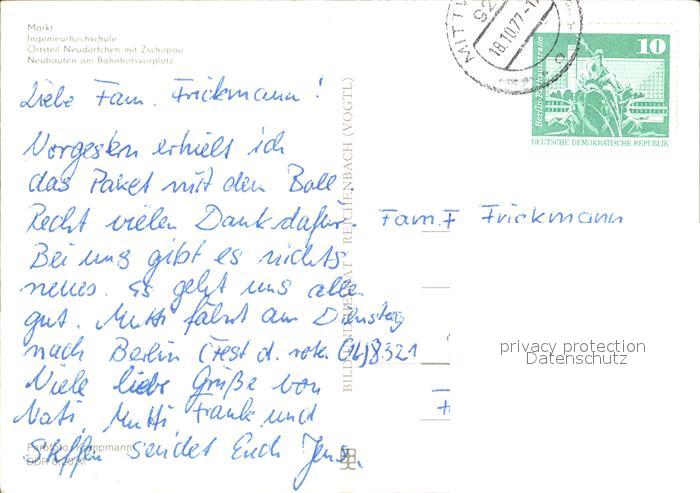 Markt
Ingenieurhochschule
Ortsteil Neudörfchen mit Zschopau
Neubauten am Bahnhofsvorplatz
MITTW
92
18.10.77-1
10
Berlin-Rathausstraße
DEUTSCHE DEMOKRATISCHE REPUBLIK
Liebe Fam. Frickmann!
Vorgestern erhielt ich
das Paket mit dem Ball.
Recht vielen Dank dafür.
Bei uns gibt es nichts
neues. Es geht uns allen
gut. Mutti fährt am Dienstag
nach Berlin (Fest d. roten
Viele liebe Grüße von
Vati, Mutti Frank und
Steffen sendet Euch Jens.
Fam. F Frickmann
8321
REICHENBACH (VOGTL)
privacy protection
Datenschutz